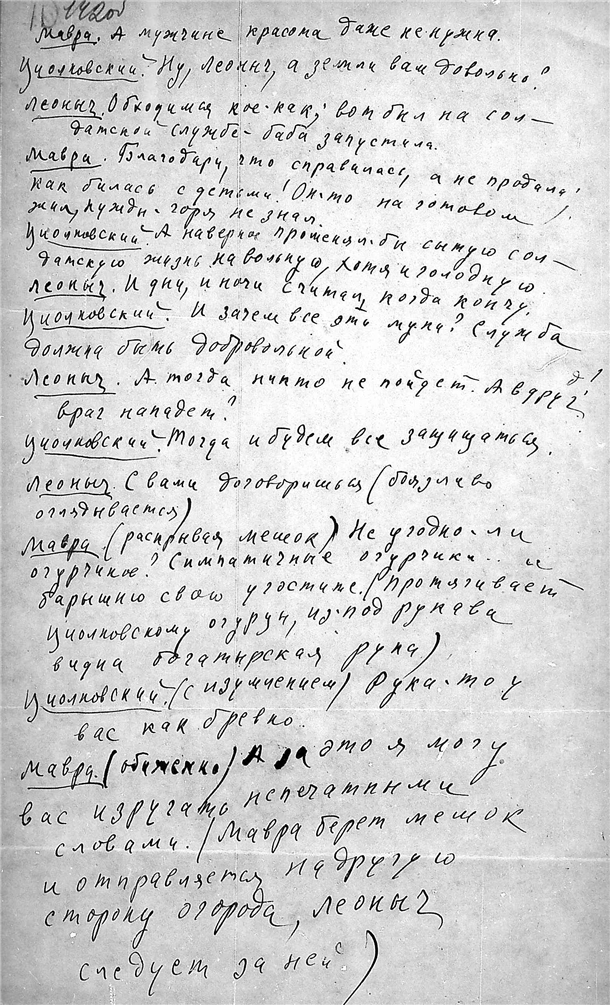 142об
Мавра. А мужчине красота даже не нужна.
Циолковский. Ну, Леоныч, а земли вам довольно?
Леоныч. Обходимся кое-как; вот был на сол-
датской службе - баба запустила.
Мавра. Благодари, что справилась, а не продала!
Как билась с детьми! Он-то на готовом
жил, нужды - горя не знал.
Циолковский. А наверное променял-бы сытую сол-
датскую жизнь на вольную, хотя и голодную.
Леоныч. И дни, и ночи считал, когда кончу.
Циолковский. И зачем все эти муки? Служба
должна быть добровольной.
Леоныч. А тогда никто не пойдет. А вдруг
враг нападет?
Циолковский. Тогда и будем все защищаться.
Леоныч. С вами договоришься (боязливо
оглядывается)
Мавра (раскрывая мешок) Не угодно-ли
огурчиков? Симпатичные огурчики... и
барышню свою угостите. (Протягивает
Циолковскому огурец, из-под рукава
видна богатырская рука)
Циолковский. (с изумлением) Рука-то у
вас как бревно.
Мавра. (обиженно) А за это я могу
вас изругать непечатными
словами. (Мавра берет мешок
и отправляется на другую
сторону огорода, Леоныч
следует за ней)